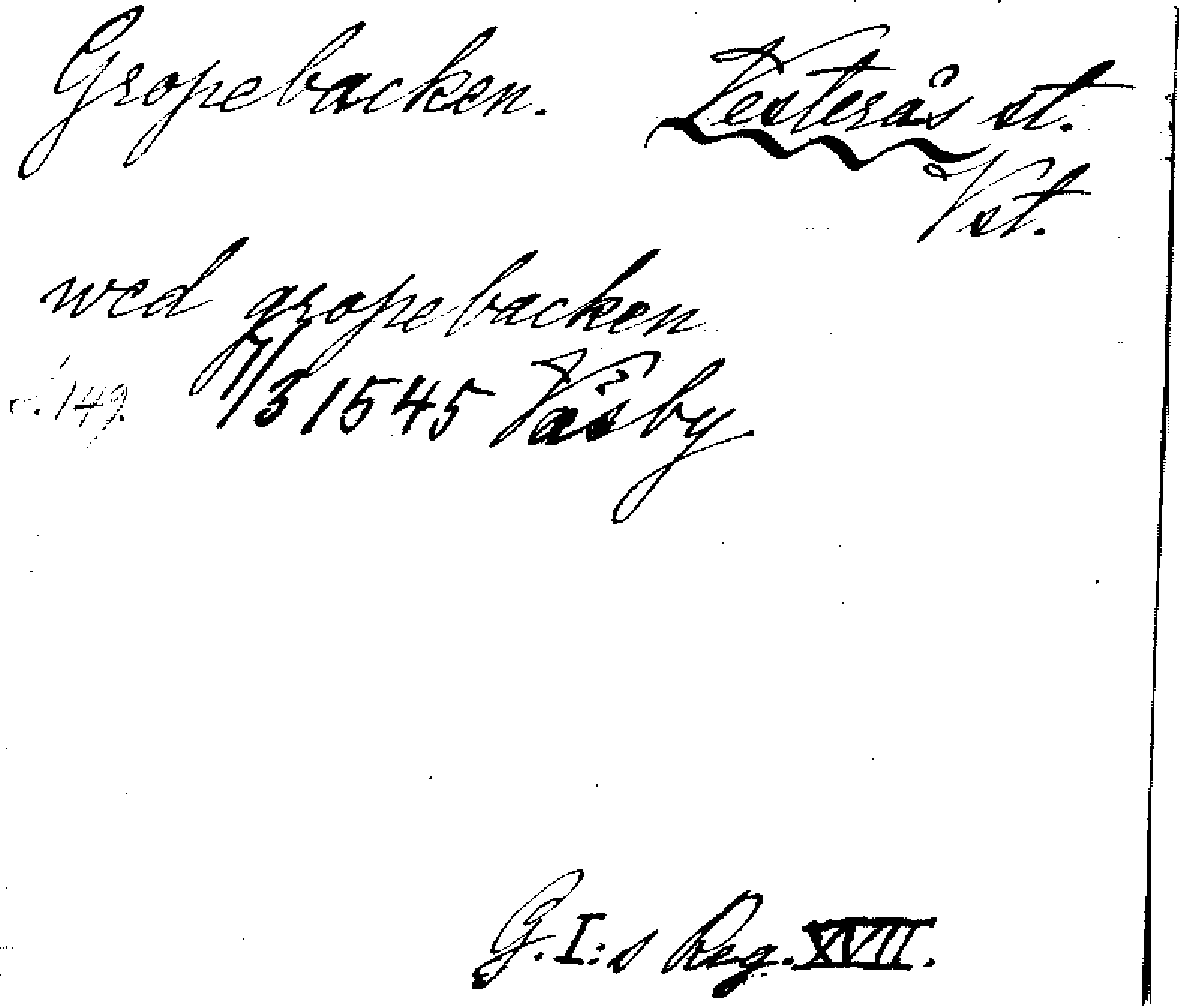 Gropebacken. Vesterås st.
Vst.
wed gropebacken
s. 149. 7/3 1545 Väsby
G. I:s Reg. XVII.